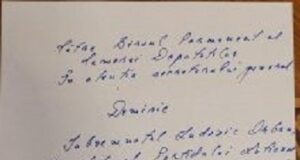 Către Biroul Permanent al
Camerei Deputaților
În atenția secretarului general
Domnie
Subsemnatul Ludovic Orban,
Partidului Național